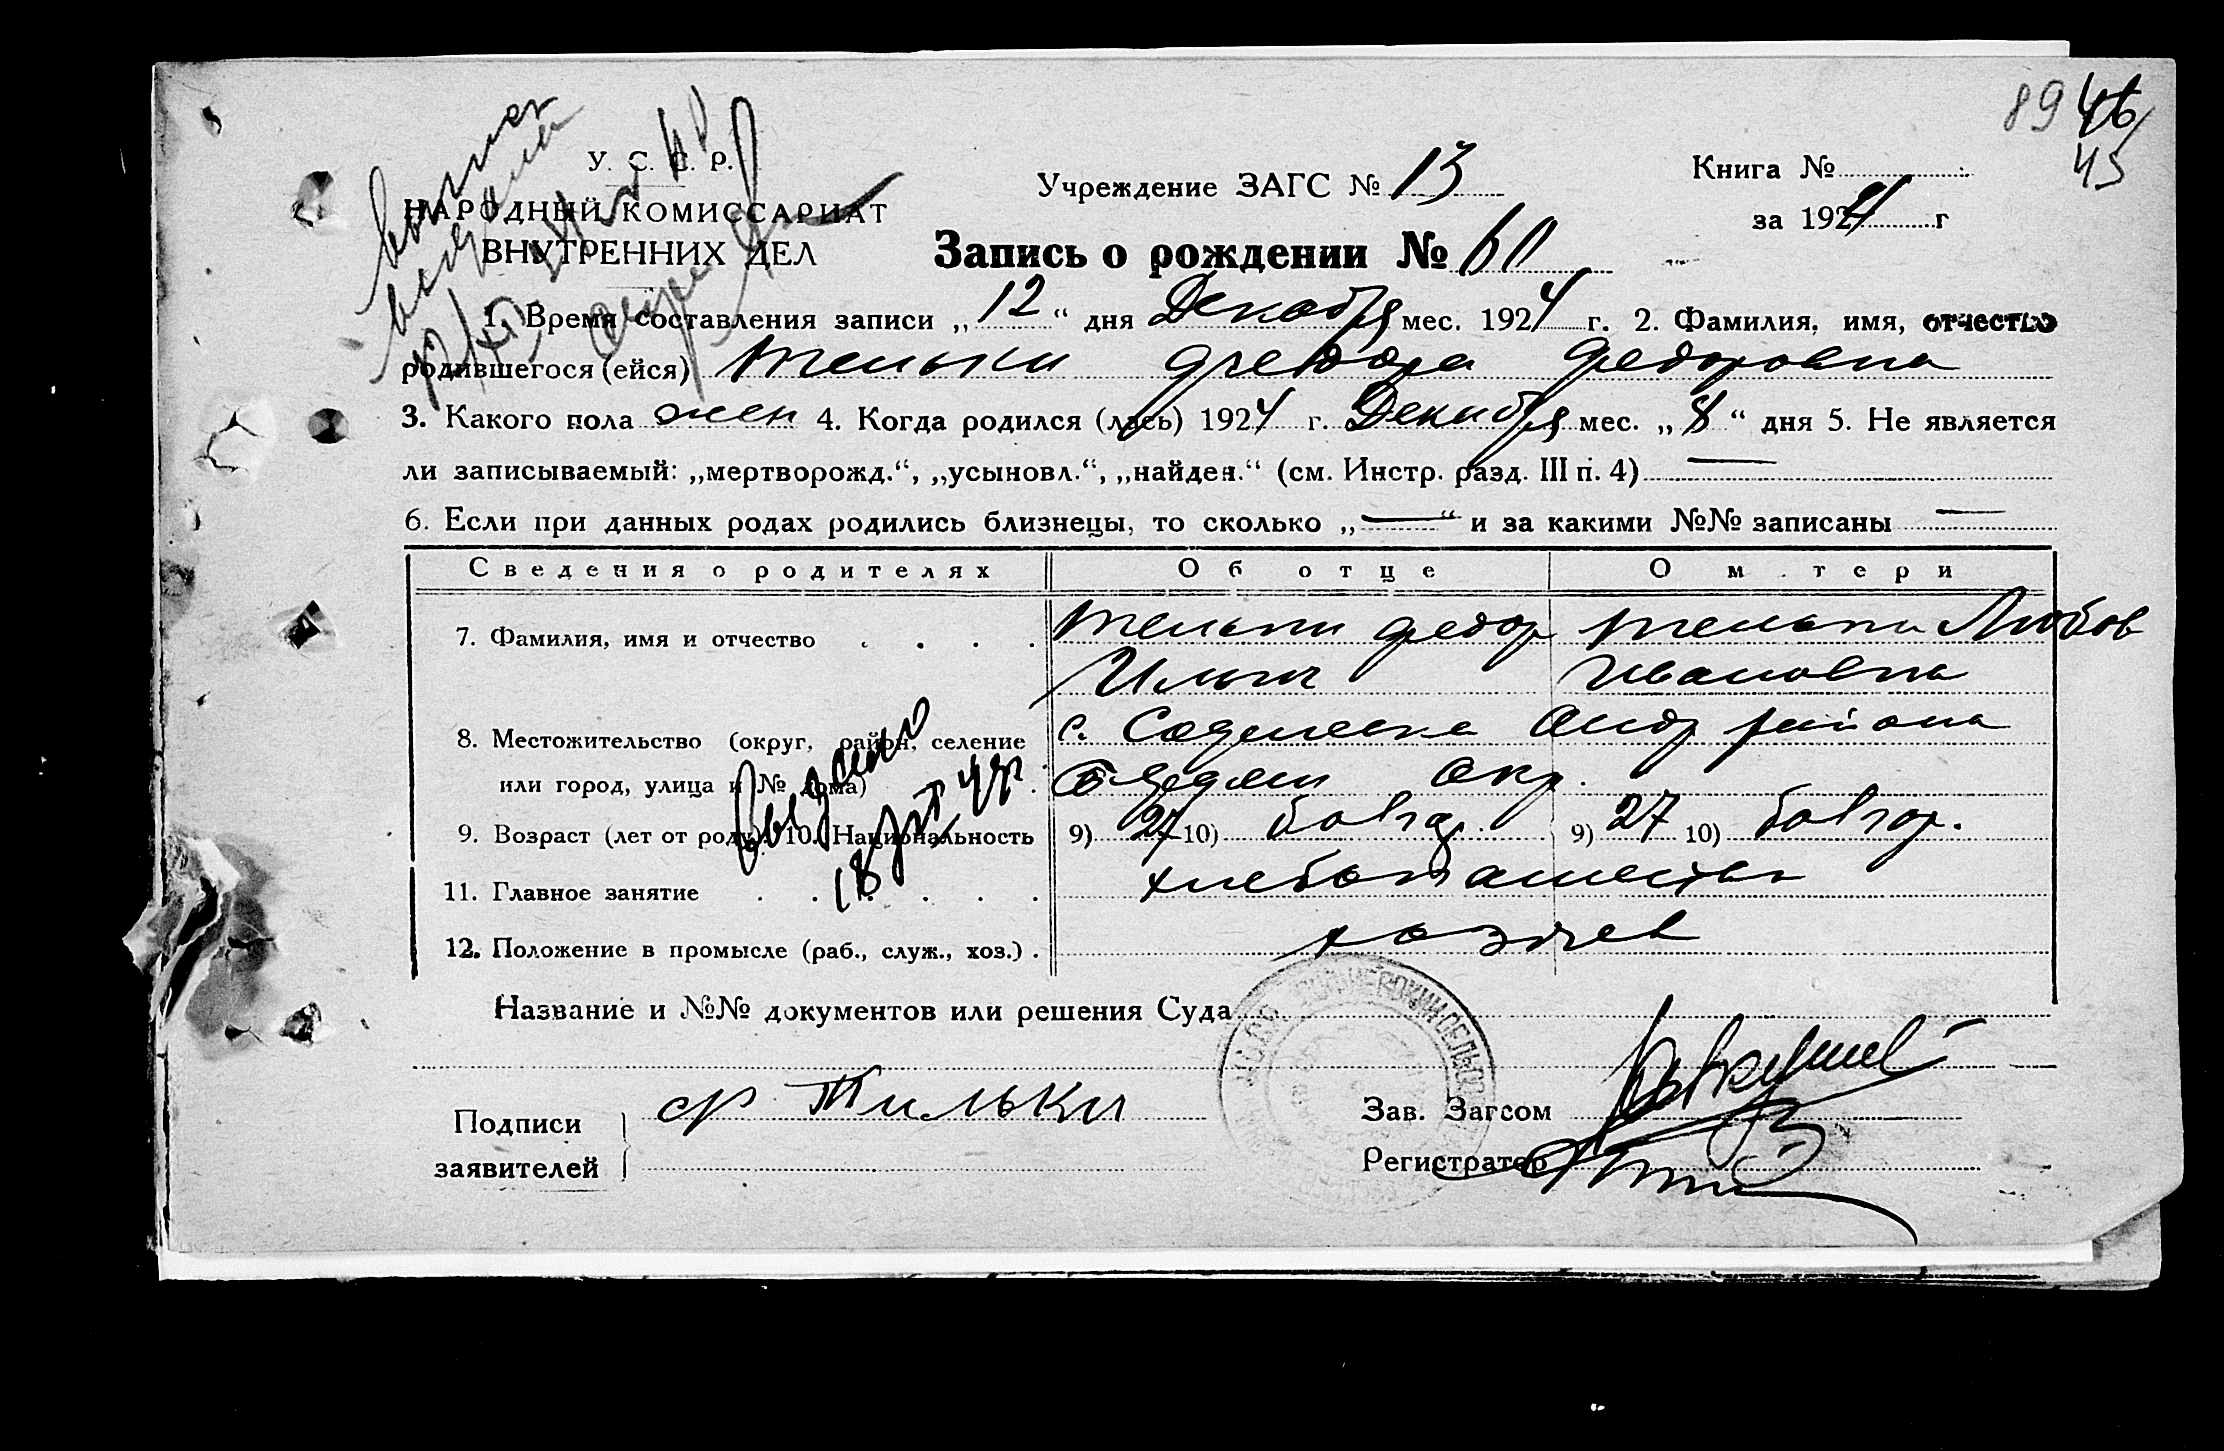 89 46
45
У. С. С. Р.
НАРОДНЫЙ КОМИССАРИАТ
ВНУТРЕННИХ ДЕЛ
Учреждение ЗАГС № 13
Книга №
за 1924 г
Запись о рождении № 60
1. Время составления записи „12“ дня Декабря мес. 1924 г. 2. Фамилия, имя, отчество
родившегося (ейся) Тельки Федора Федоровна
3. Какого пола жен 4. Когда родился (лась) 1924 г. Декабря мес. „8“ дня 5. Не является
ли записываемый: „мертворожд.“, „усыновл.“, „найден.“ (см. Инстр. разд. III п. 4) —
6. Если при данных родах родились близнецы, то сколько „—“ и за какими №№ записаны —
Сведения о родителях Об отце О м тери
7. Фамилия, имя и отчество . . . . Тельки Федор Тельки Любов
Ильич Ивановна
8. Местожительство (округ, район, селение с. района
или город, улица и № дома) окр.
9. Возраст (лет от роду). 10. Национальность 9) 27 10) болгар. 9) 27 10) болгар.
Выдано
18
11. Главное занятие . . . . . . хлебопашества
12. Положение в промысле (раб., служ., хоз.) . хозяев
Название и №№ документов или решения Суда
Подписи
заявителей
Ф Тильки
Зав. Загсом
Регистратор